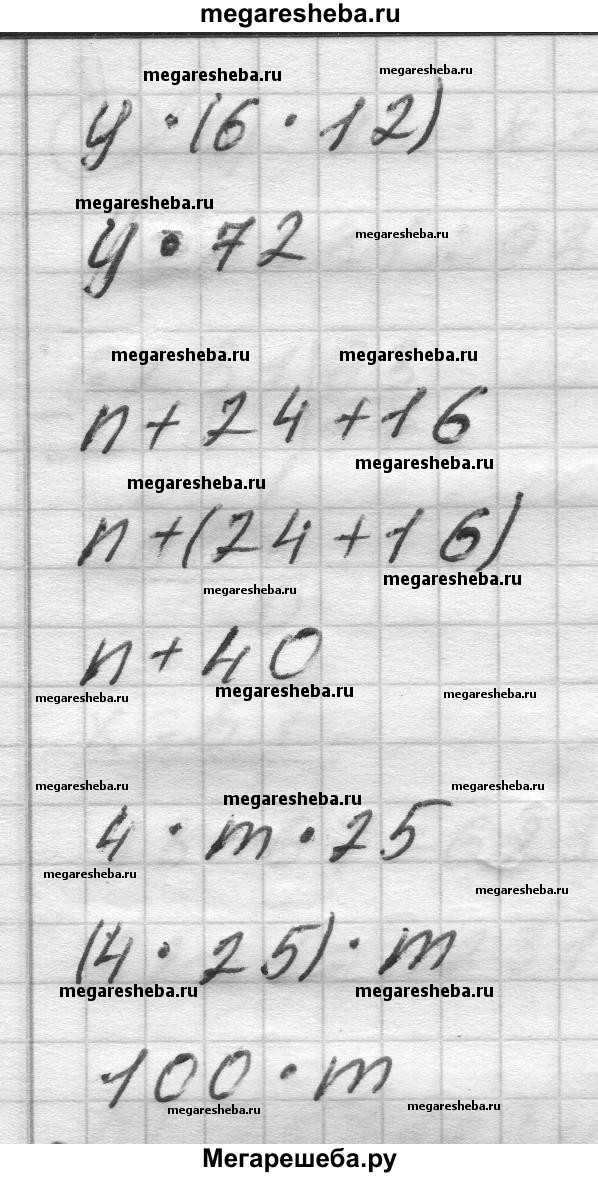 megaresheba.ru
megaresheba.ru megaresheba.ru
y · (6 · 12)
megaresheba.ru
y · 72 megaresheba.ru
megaresheba.ru megaresheba.ru
n + 24 + 16
megaresheba.ru
megaresheba.ru
n + (24 + 16)
megaresheba.ru
megaresheba.ru
n + 40
megaresheba.ru megaresheba.ru megaresheba.ru
megaresheba.ru megaresheba.ru
megaresheba.ru
4 · m · 25
megaresheba.ru
megaresheba.ru
(4 · 25) · m
megaresheba.ru megaresheba.ru
100 · m
megaresheba.ru megaresheba.ru
Мегарешеба.ру